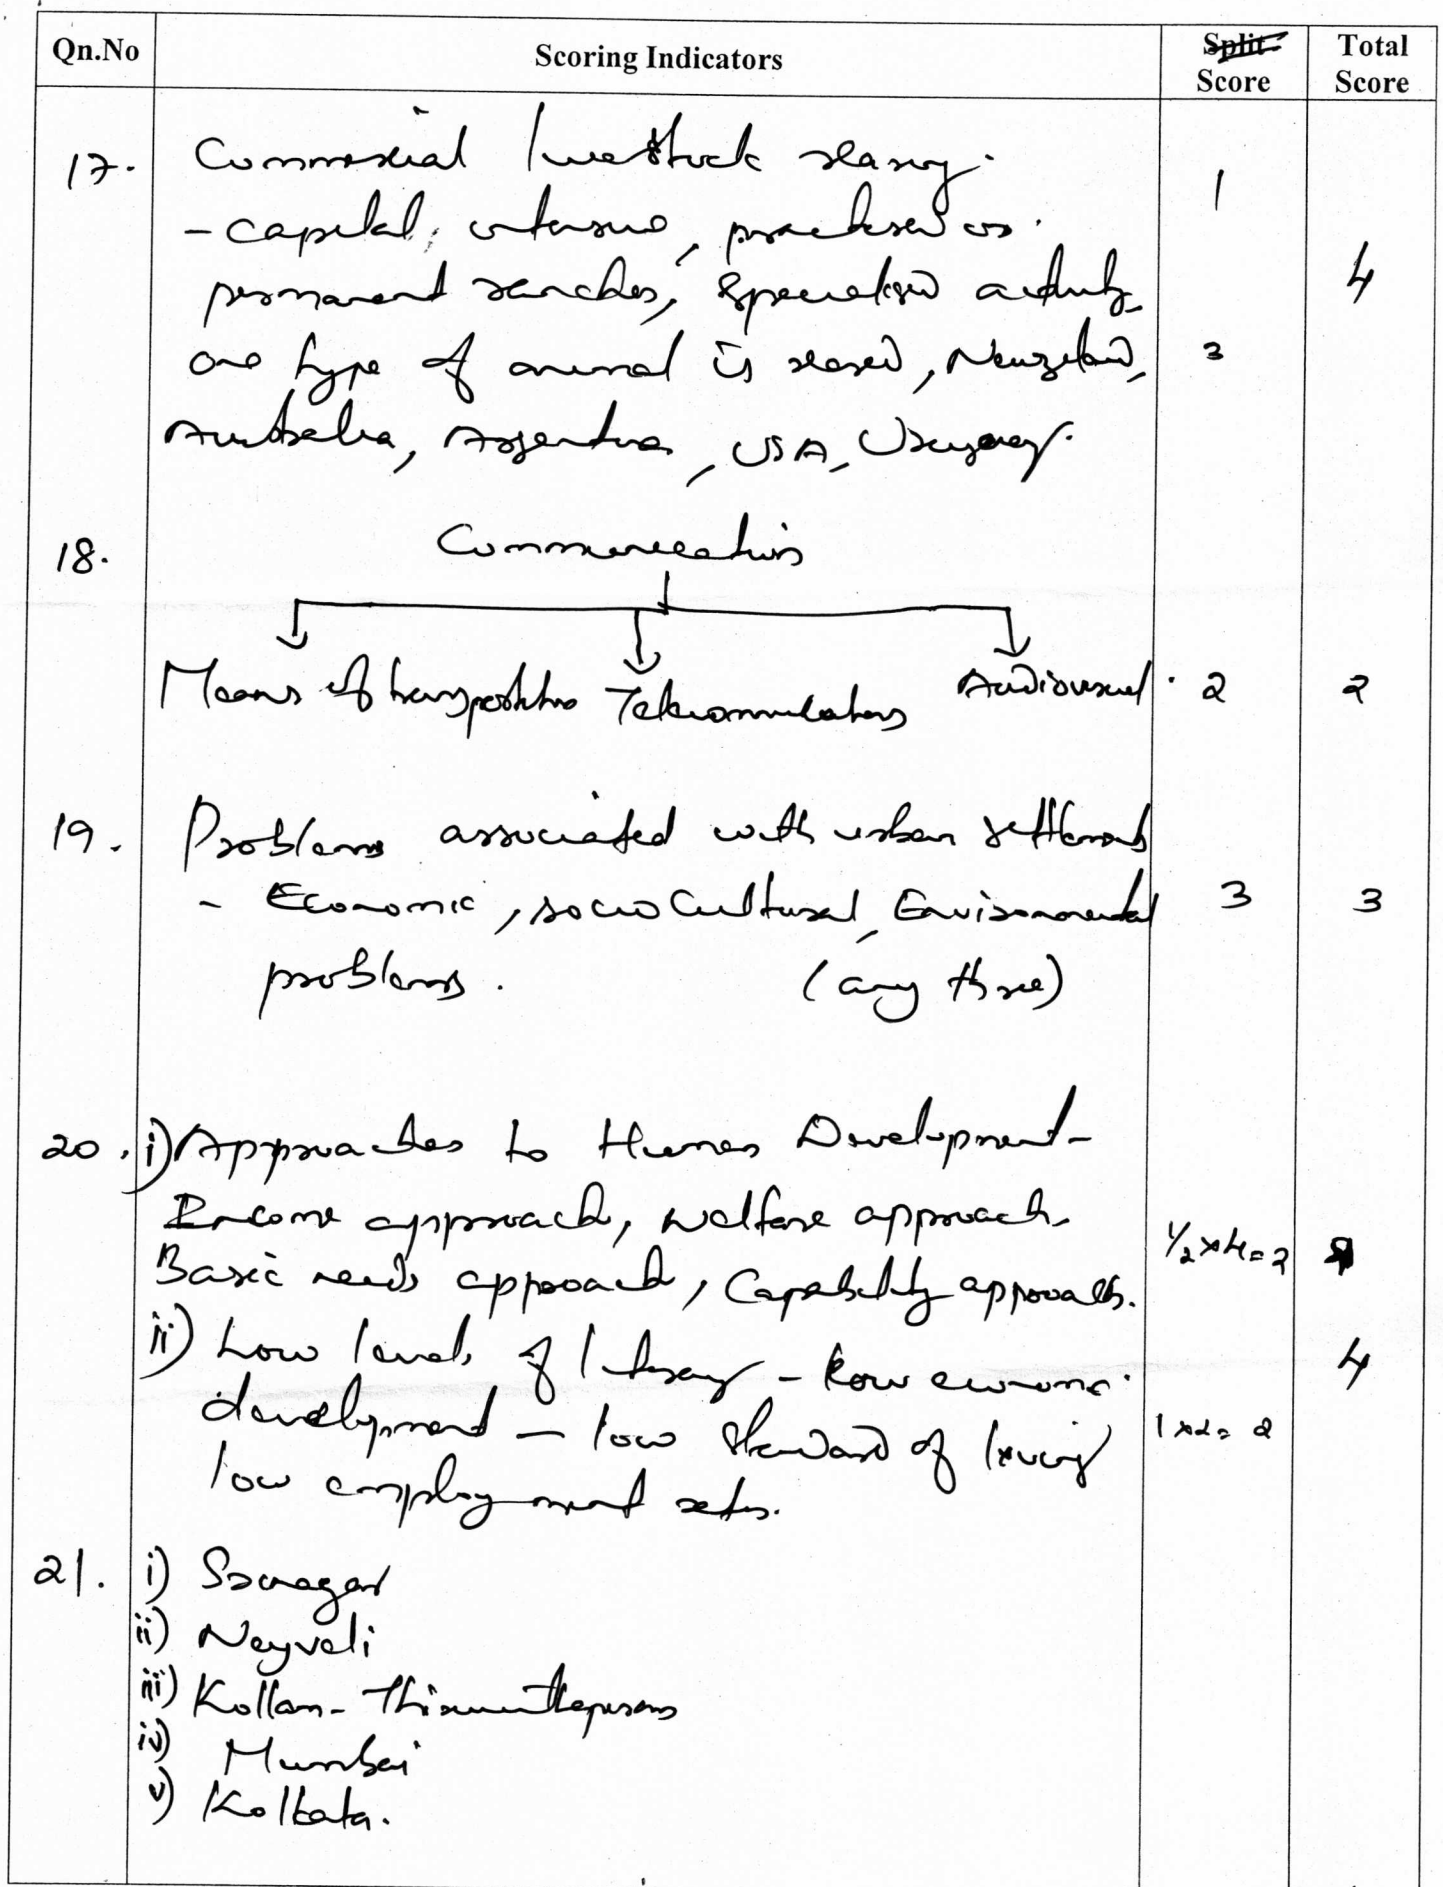 Qn.No Scoring Indicators Split Score Total Score
17. Commercial livestock rearing. 1
- capital, intensive, practised on
permanent ranches, specialised activity, 4
one type of animal is reared, Newzeland, 3
Australia, Argentina, USA, Uruguay.
18. Communication
Means of transportation Telecommunications Audiovisual. 2 2
19. Problems associated with urban settlements
- Economic, socio Cultural, Environmental 3 3
problems. (any three)
20. i) Approaches to Human Development-
Income approach, welfare approach, 1/2 x 4 = 2
Basic needs approach, Capability approach.
ii) Low levels of literacy - low economic 4
development - low standard of living 1x2= 2
low employment rates.
21. i) Srinagar
ii) Neyveli
iii) Kollam - Thiruvanthapuram
iv) Mumbai
v) Kolkata.